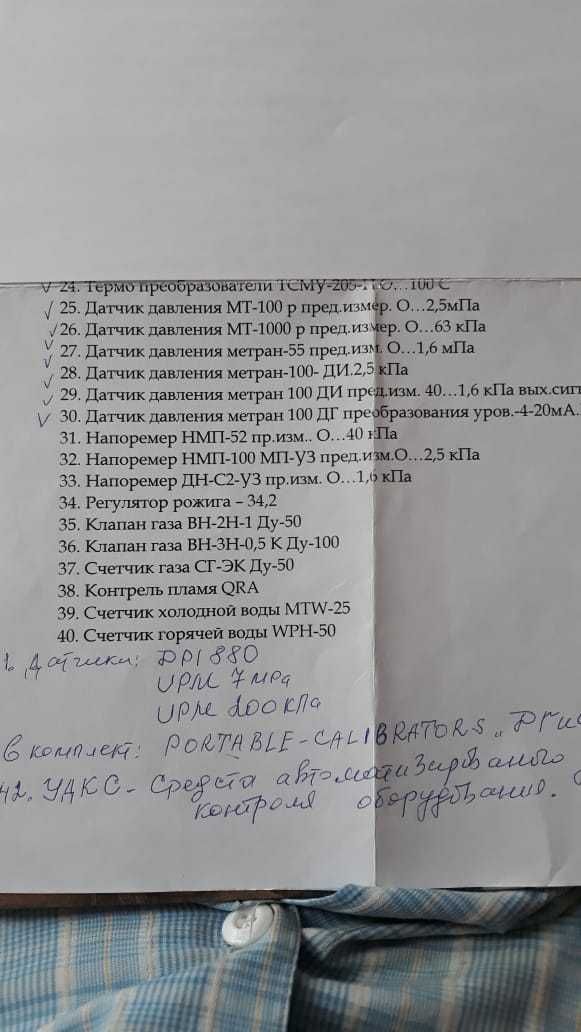 24. Термо преобразователи ТСМУ-205- О…100 С
25. Датчик давления МТ-100 р пред.измер. О…2,5мПа
26. Датчик давления МТ-1000 р пред.измер. О…63 кПа
27. Датчик давления метран-55 пред.изм. О…1,6 мПа
28. Датчик давления метран-100- ДИ.2,5 кПа
29. Датчик давления метран 100 ДИ пред.изм. 40…1,6 кПа вых.сигн
30. Датчик давления метран 100 ДГ преобразования уров.-4-20мА.
31. Напоремер НМП-52 пр.изм.. О…40 кПа
32. Напоремер НМП-100 МП-УЗ пред.изм.О…2,5 кПа
33. Напоремер ДН-С2-УЗ пр.изм. О…1,6 кПа
34. Регулятор рожига – 34,2
35. Клапан газа ВН-2Н-1 Ду-50
36. Клапан газа ВН-3Н-0,5 К Ду-100
37. Счетчик газа СГ-ЭК Ду-50
38. Контрель пламя QRA
39. Счетчик холодной воды MTW-25
40. Счетчик горячей воды WPH-50
1. Датчики: DPI 880
UPM 7 MPa
UPM 200 КПа
в комплект: PORTABLE-CALIBRATORS
42. УДКС- Средста автоматизированого
контроля оборудования.